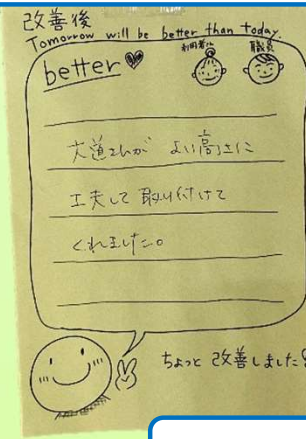 改善後
Tomorrow will be better than today.
利用者さん 職員
better
大道さんが よい高さに
工夫して 取り付けて
くれました。
ちょっと 改善しました